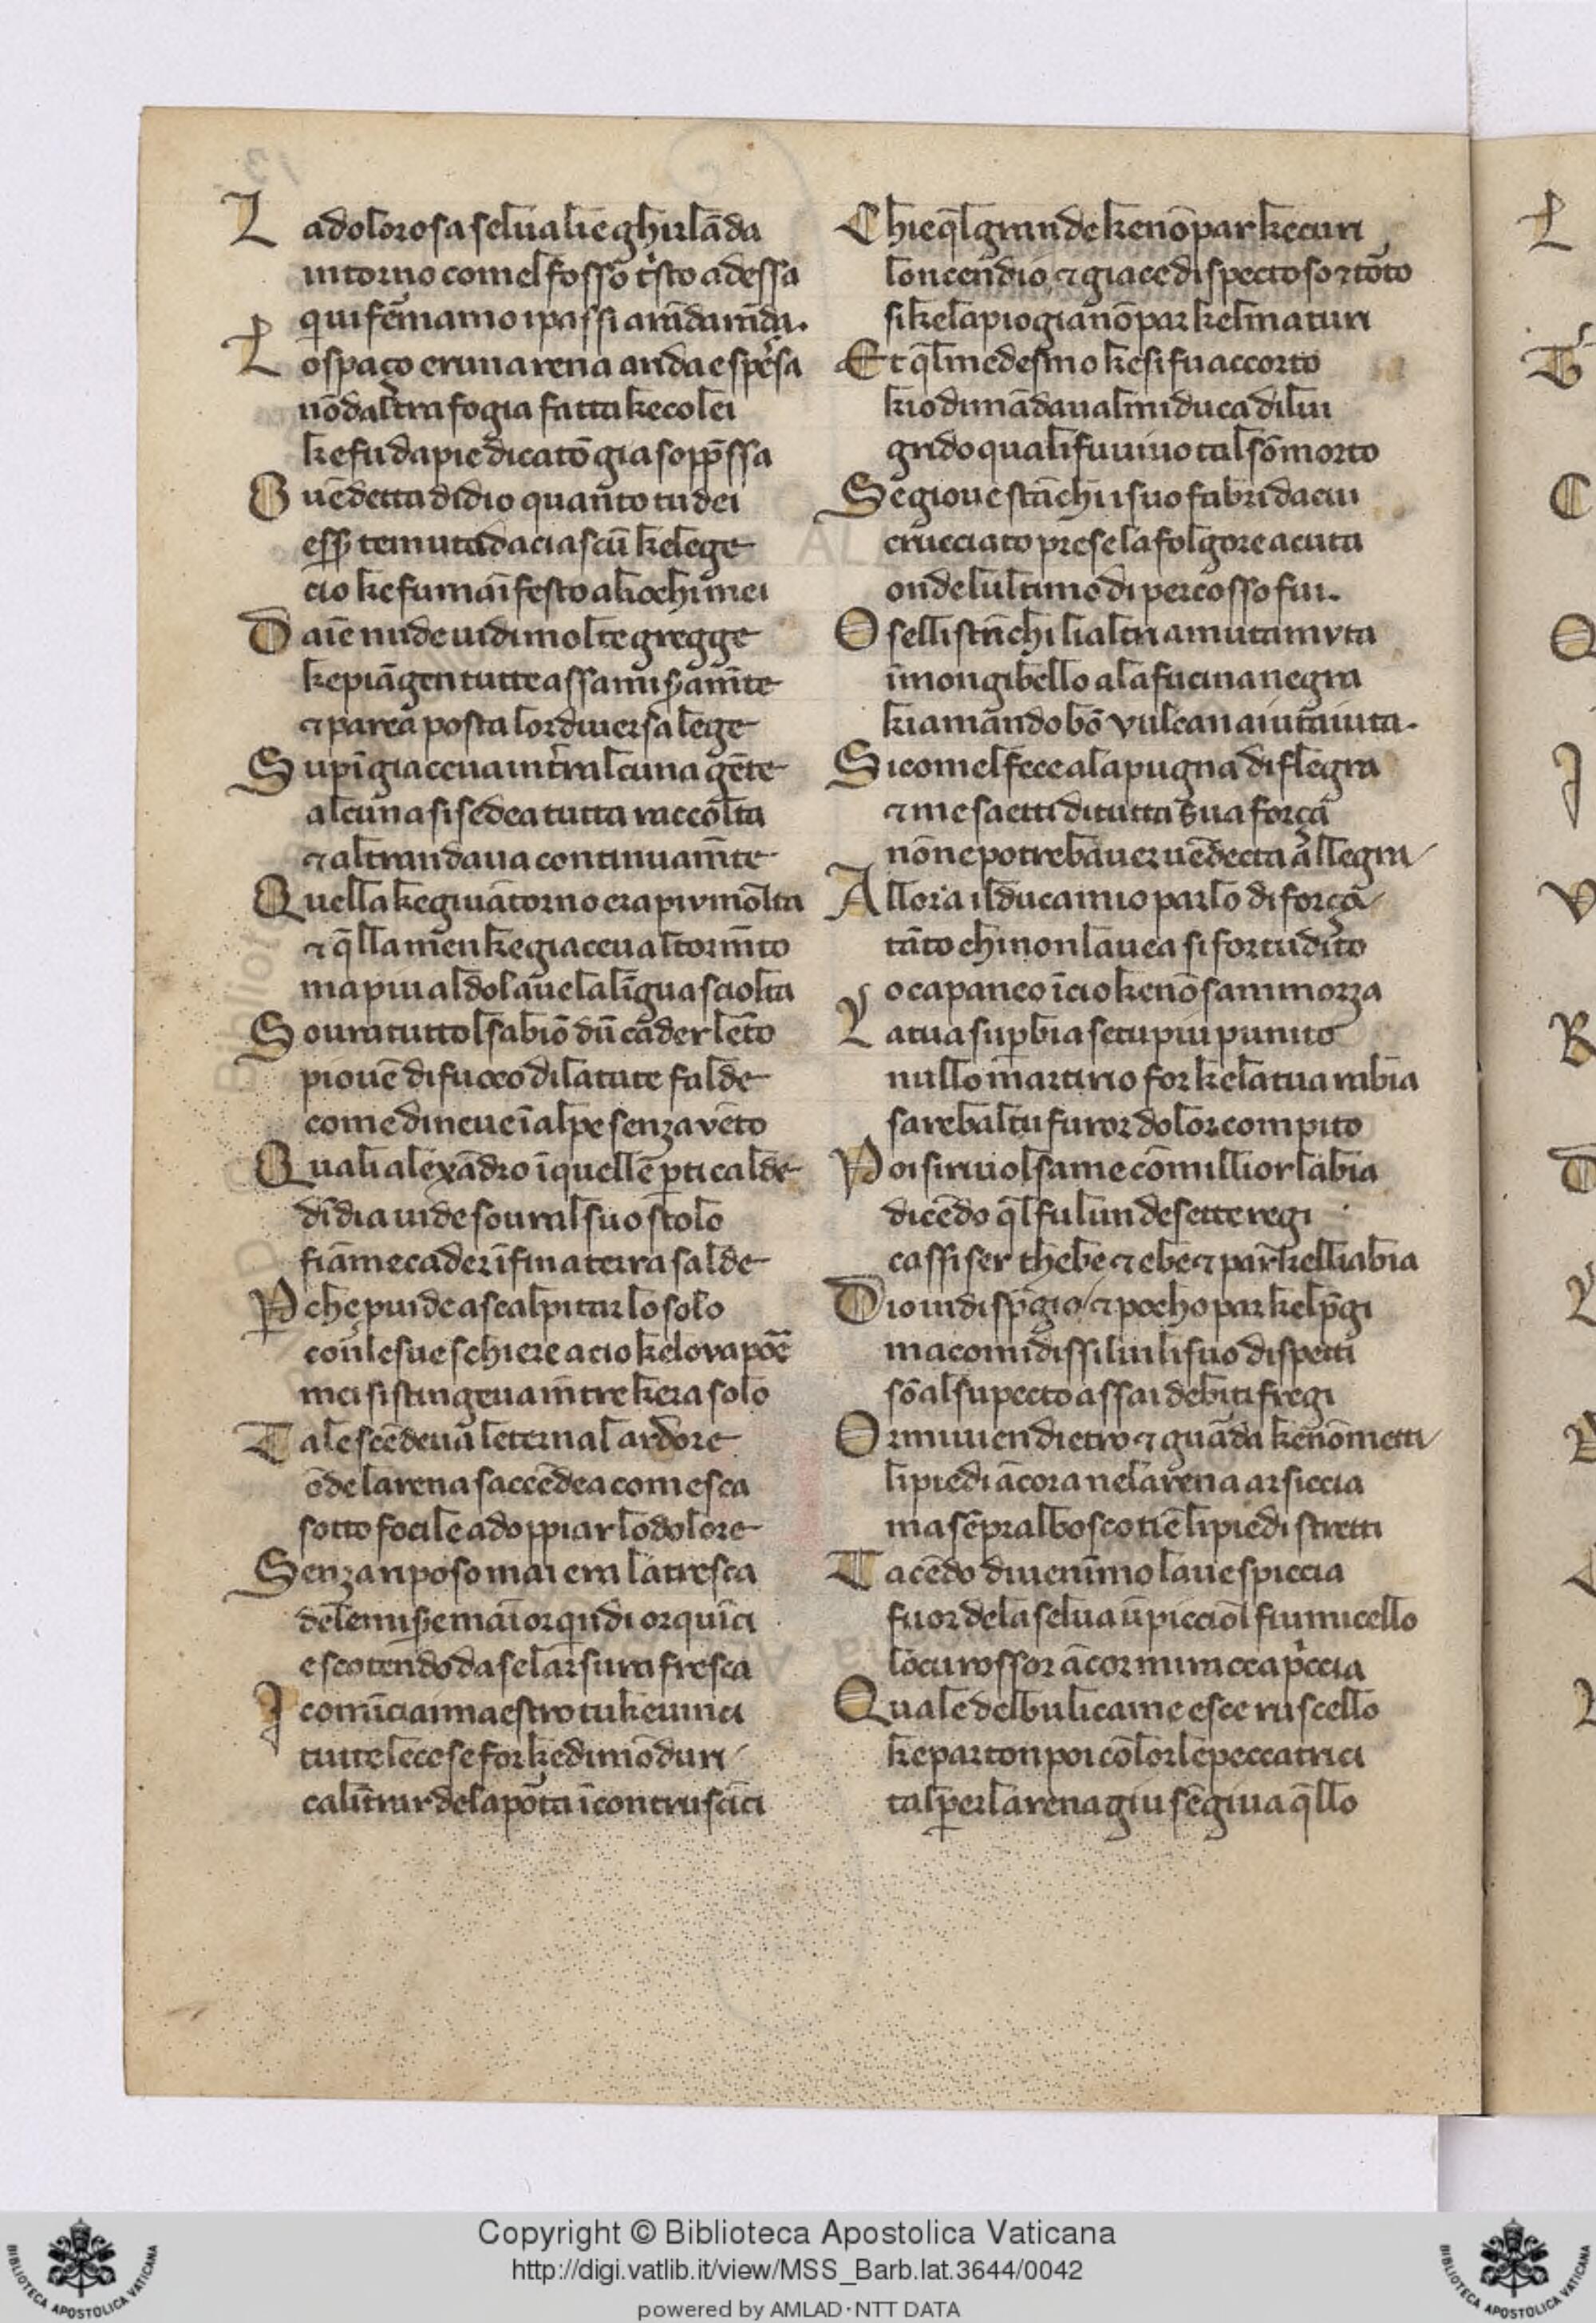 La dolorosa selua lie ghirlāda
intorno comel fosso tsto ad essa
qui femamo ipassi a rāda rāda.
Lo spaço erunarena arida espesa
nō daltra fogia fatta ke colei
ke fu da pie di catō gia soppssa
O uēdetta didio quanto tu dei
ess temuta daciascū ke lege
cio ke fu maifesto aliochi mei
Daīe nude uidi molte gregge
ke piāgen tutte assai misamte
⁊ parea posta lor diuersa lege
Supī giaceua intra alcuna gēte
alcuna si sedea tutta raccolta
⁊ altrandaua continuamte
Quella ke giua ītorno era piu molta
⁊ qlla men ke giaceua al tormto
ma piu al dolauela līgua sciolta
Soura tuttol sabiō dū cader lēto
piouē di fuoco dilatate falde
come di neue ī alpe senza vēto
Quali alexādro ī quelle pti calde
dīdia uide soural suo stolo
fiāme cader īfin a terra salde
Pche puide a scalpitar lo solo
con le sue schiere acio ke lo vapoē
mei si stingeua mtre kera solo
Tale scēdeua leternal ardore
ōde larena saccēdea comesca
sotto focile adoppiar lo dolore
Senza riposo mai era la tresca
dele misē mai or qndi or quīci
escotendo da se larsura fresca
I comīciai maestro tu ke uinci
tutte le cose for ke dimō duri
calītrar dela pōta īcontra scīci
Chi e ql grande ke nō par ke curi
loncendio, ⁊ giace dispectoso ⁊ tōto
si ke la piogia nō par kel maturi
Et ql medesmo ke si fu accorto
kio dimādaua lmi duca di lui
grido quali fu uiuo tal sō morto
Se gioue stāchi i suo fabri da cui
crucciato prese la folgore acuta
onde lultimo di percosso fui.
O selli stāchi li altri a muta mvta
ī mongibello a la fucina negra
kiamando bō vulcan aiuta iuta.
Si comel fece a la pugna di flegra
⁊ me saetti di tutta sua força
non ne potrebauer uēdecta allegra
Allora il duca mio parlo di força
tāto chi non lauea si forte udito
o capaneo ī cio ke nō sammorza
La tua supbia se tu piu punito
nullo martirio for ke la tua rabia
sareb al tu furor dolor compito
Poi si riuolsa me cō millior labia
dicēdo ql fu lun de sette regi
cassiser thebe ⁊ ebe ⁊ par kelli abia
Dio in dispgio ⁊ pocho par kel pgi
ma comi dissi lui li suo dispetti
sō al su pecto assai debiti fregi
Or mi uien dietro ⁊ guāda ke nō metti
li piedi ācora nela rena arsiccia
ma sēpr al bosco tiē li piedi stretti
Tacēdo diuenimo la ue spiccia
fuor dela selua ū picciol fiumicello
lo cu rossor ācor mi raccapccia
Quale del bulicame esce ruscello
ke parton poi cō lor le peccatrici
tal per larena giu sē giua qllo
Copyright © Biblioteca Apostolica Vaticana
http://digi.vatlib.it/view/MSS_Barb.lat.3644/0042
powered by AMLAD·NTT DATA
BIBLIOTECA APOSTOLICA VATICANA
BIBLIOTECA APOSTOLICA VATICANA